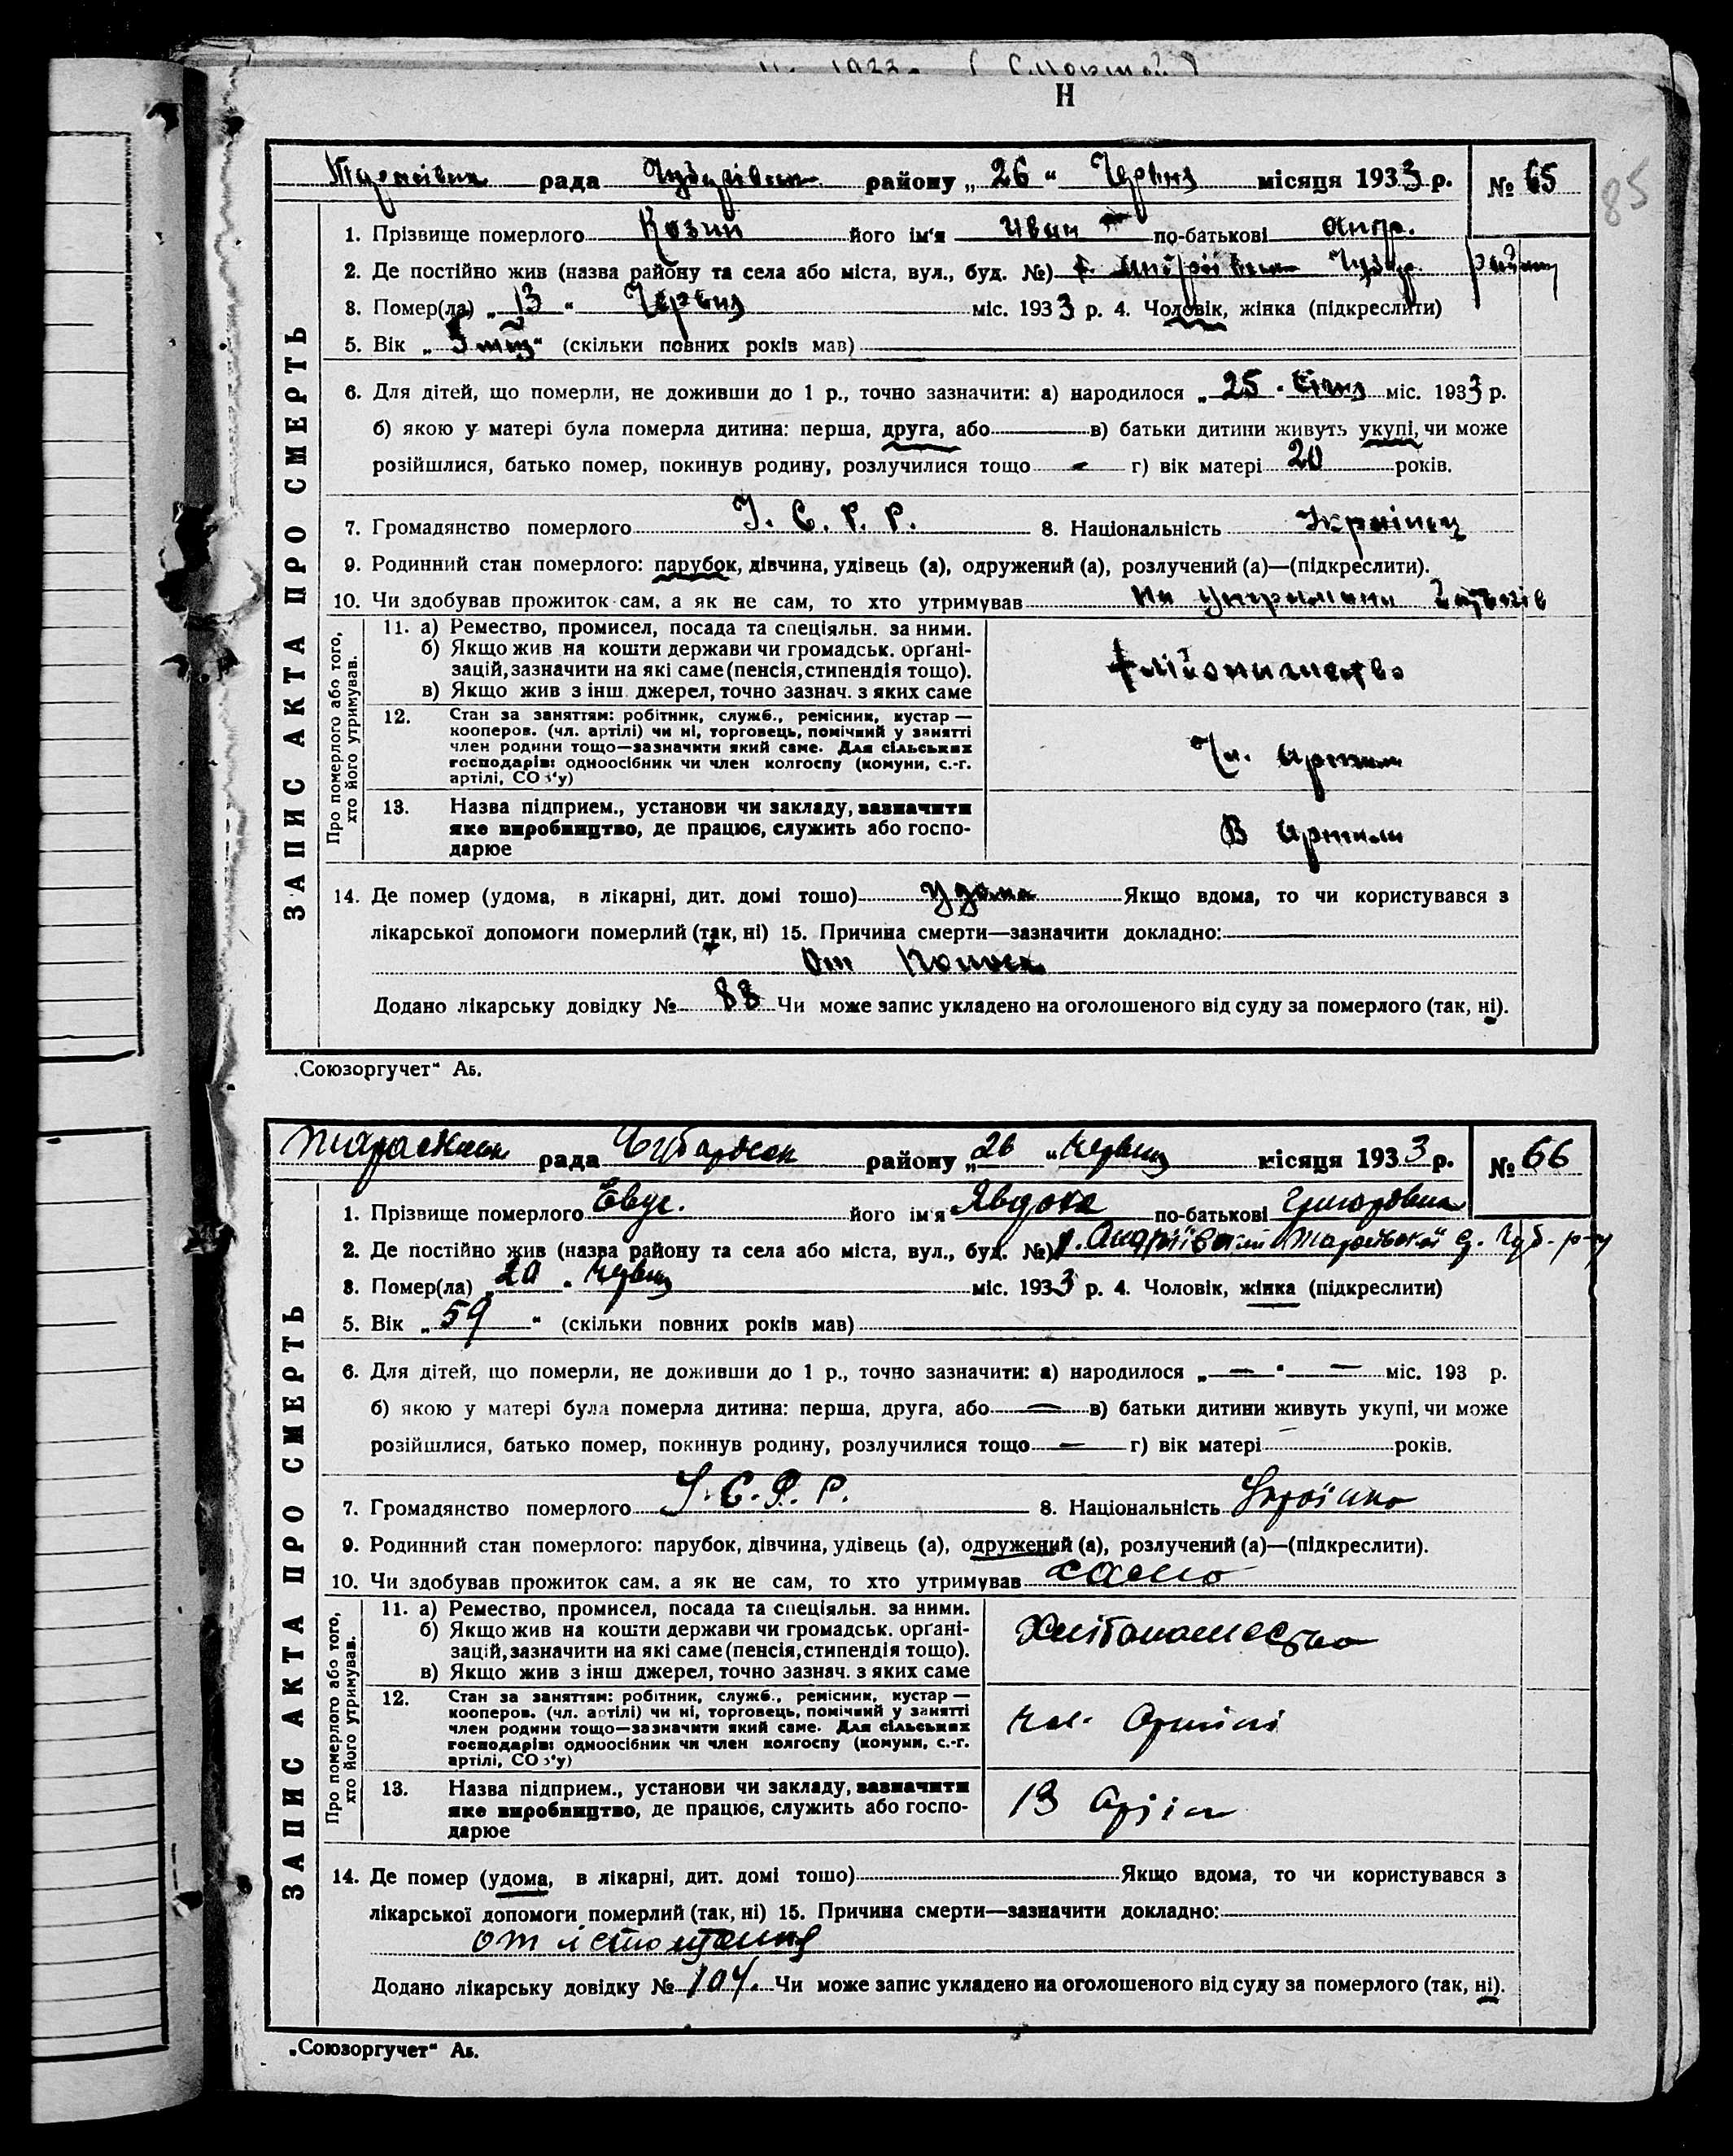 Н
рада району „ 26 “ Червня місяця 1933 р. № 65
85
1. Прізвище померлого Козин його ім'я Иван по-батькові Андр.
2. Де постійно жив (назва району та села або міста, вул., буд. №)
3. Помер(ла) „ 13 “ Червня міс. 1933 р. 4. Чоловік, жінка (підкреслити)
5. Вік „ 5 “ (скільки повних років мав)
6. Для дітей, що померли, не доживши до 1 р., точно зазначити: а) народилося „ 25 “ Січня міс. 1933 р.
б) якою у матері була померла дитина: перша, друга, або — в) батьки дитини живуть укупі, чи може
розійшлися, батько помер, покинув родину, розлучилися тощо — г) вік матері 20 років.
7. Громадянство померлого У. С. Р. Р. 8. Національність Українец
9. Родинний стан померлого: парубок, дівчина, удівець (а), одружений (а), розлучений (а)—(підкреслити).
10. Чи здобував прожиток сам, а як не сам, то хто утримував на
ЗАПИС АКТА ПРО СМЕРТЬ
Про померлого або того,
хто його утримував.
11. а) Ремество, промисел, посада та спеціяльн. за ними.
б) Якщо жив на кошти держави чи громадськ. організацій,
зазначити на які саме (пенсія, стипендія тощо).
в) Якщо жив з інш. джерел, точно зазнач. з яких саме
12. Стан за заняттям: робітник, служб., ремісник, кустар —
кооперов. (чл. артілі) чи ні, торговець, помічний у занятті
член родини тощо—зазначити який саме. Для сільських
господарів: одноосібник чи член колгоспу (комуни, с.-г.
артілі, СОЗ'у)
Чл. Артили
13. Назва підприєм., установи чи закладу, зазначити
яке виробництво, де працює, служить або госпо-
дарює
В Артили
14. Де помер (удома, в лікарні, дит. домі тощо) удома Якщо вдома, то чи користувався з
лікарської допомоги померлий (так, ні) 15. Причина смерти—зазначити докладно:
От
Додано лікарську довідку № 88 Чи може запис укладено на оголошеного від суду за померлого (так, ні).
„Союзоргучет“ Аб.
рада району „ 26 “ Червня місяця 1933 р. № 66
1. Прізвище померлого його ім'я Явдоха по-батькові Григоровна
2. Де постійно жив (назва району та села або міста, вул., буд. №)
3. Помер(ла) „ 20 “ Червня міс. 1933 р. 4. Чоловік, жінка (підкреслити)
5. Вік „ 59 “ (скільки повних років мав)
6. Для дітей, що померли, не доживши до 1 р., точно зазначити: а) народилося „ — “ — міс. 193 р.
б) якою у матері була померла дитина: перша, друга, або — в) батьки дитини живуть укупі, чи може
розійшлися, батько помер, покинув родину, розлучилися тощо — г) вік матері — років.
7. Громадянство померлого У. С. Р. Р. 8. Національність
9. Родинний стан померлого: парубок, дівчина, удівець (а), одружений (а), розлучений (а)—(підкреслити).
10. Чи здобував прожиток сам, а як не сам, то хто утримував само
ЗАПИС АКТА ПРО СМЕРТЬ
Про померлого або того,
хто його утримував.
11. а) Ремество, промисел, посада та спеціяльн. за ними.
б) Якщо жив на кошти держави чи громадськ. органі-
зацій, зазначити на які саме (пенсія, стипендія тощо).
в) Якщо жив з інш джерел, точно зазнач. з яких саме
12. Стан за заняттям: робітник, служб., ремісник, кустар —
кооперов. (чл. артілі) чи ні, торговець, помічний у занятті
член родини тощо—зазначити який саме. Для сільських
господарів: одноосібник чи член колгоспу (комуни, с.-г.
артілі, СОЗ'у)
13. Назва підприєм., установи чи закладу, зазначити
яке виробництво, де працює, служить або госпо-
дарює
14. Де помер (удома, в лікарні, дит. домі тощо) Якщо вдома, то чи користувався з
лікарської допомоги померлий (так, ні) 15. Причина смерти—зазначити докладно:
от истощения
Додано лікарську довідку № 104. Чи може запис укладено на оголошеного від суду за померлого (так, ні).
„Союзоргучет“ Аб.